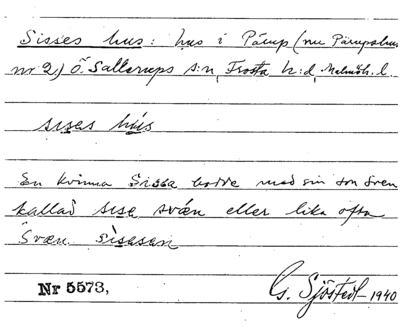 Sisses hus: hus i Pårup (nu Pårupshus
nr 2,) Ö. Sallerups s:n, Frosta h:d, Malmöh. l.
sises hús
En kvinna Sissa bodde med sin son Sven
kallad sise svæn eller lika ofta
Svæn sisesan
Nr 5573,
G. Sjöstedt 1940